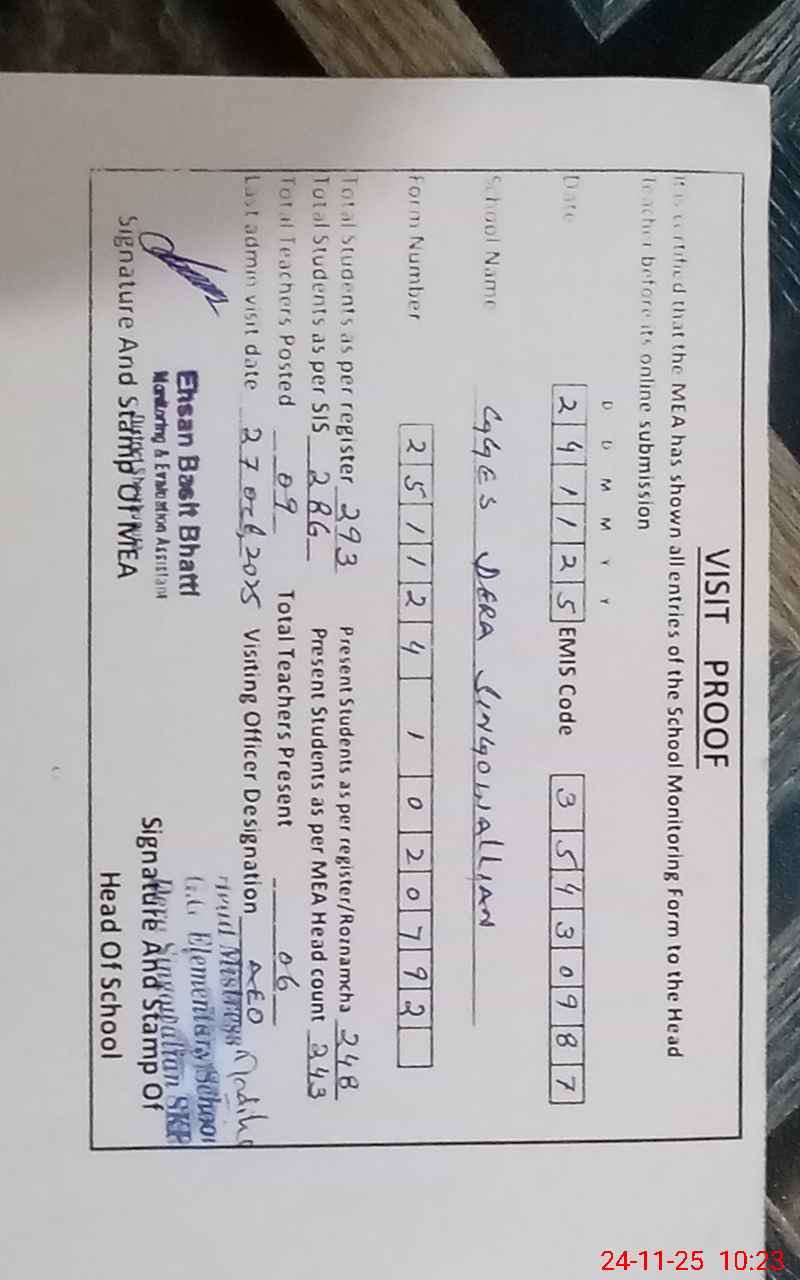 VISIT PROOF
It is certified that the MEA has shown all entries of the School Monitoring Form to the Head
Teacher before its online submission
D D M M Y Y
Date 2 4 1 1 2 5 EMIS Code 3 5 4 3 0 9 8 7
School Name GGES DERA SINGOWALLIAN
Form Number 2 5 1 1 2 4 1 0 2 0 7 9 2
Total Students as per register 293 Present Students as per register/Roznamcha 248
Total Students as per SIS 286 Present Students as per MEA Head count 243
Total Teachers Posted 09 Total Teachers Present 06
Last admin visit date 27 Oct, 2025 Visiting Officer Designation AEO
Ehsan Basit Bhatti
Monitoring & Evaluation Assistant
Signature And Stamp Of MEA
Head Mistress
G.G. Elementary School
SKP
Signature And Stamp Of
Head Of School
24-11-25 10:23